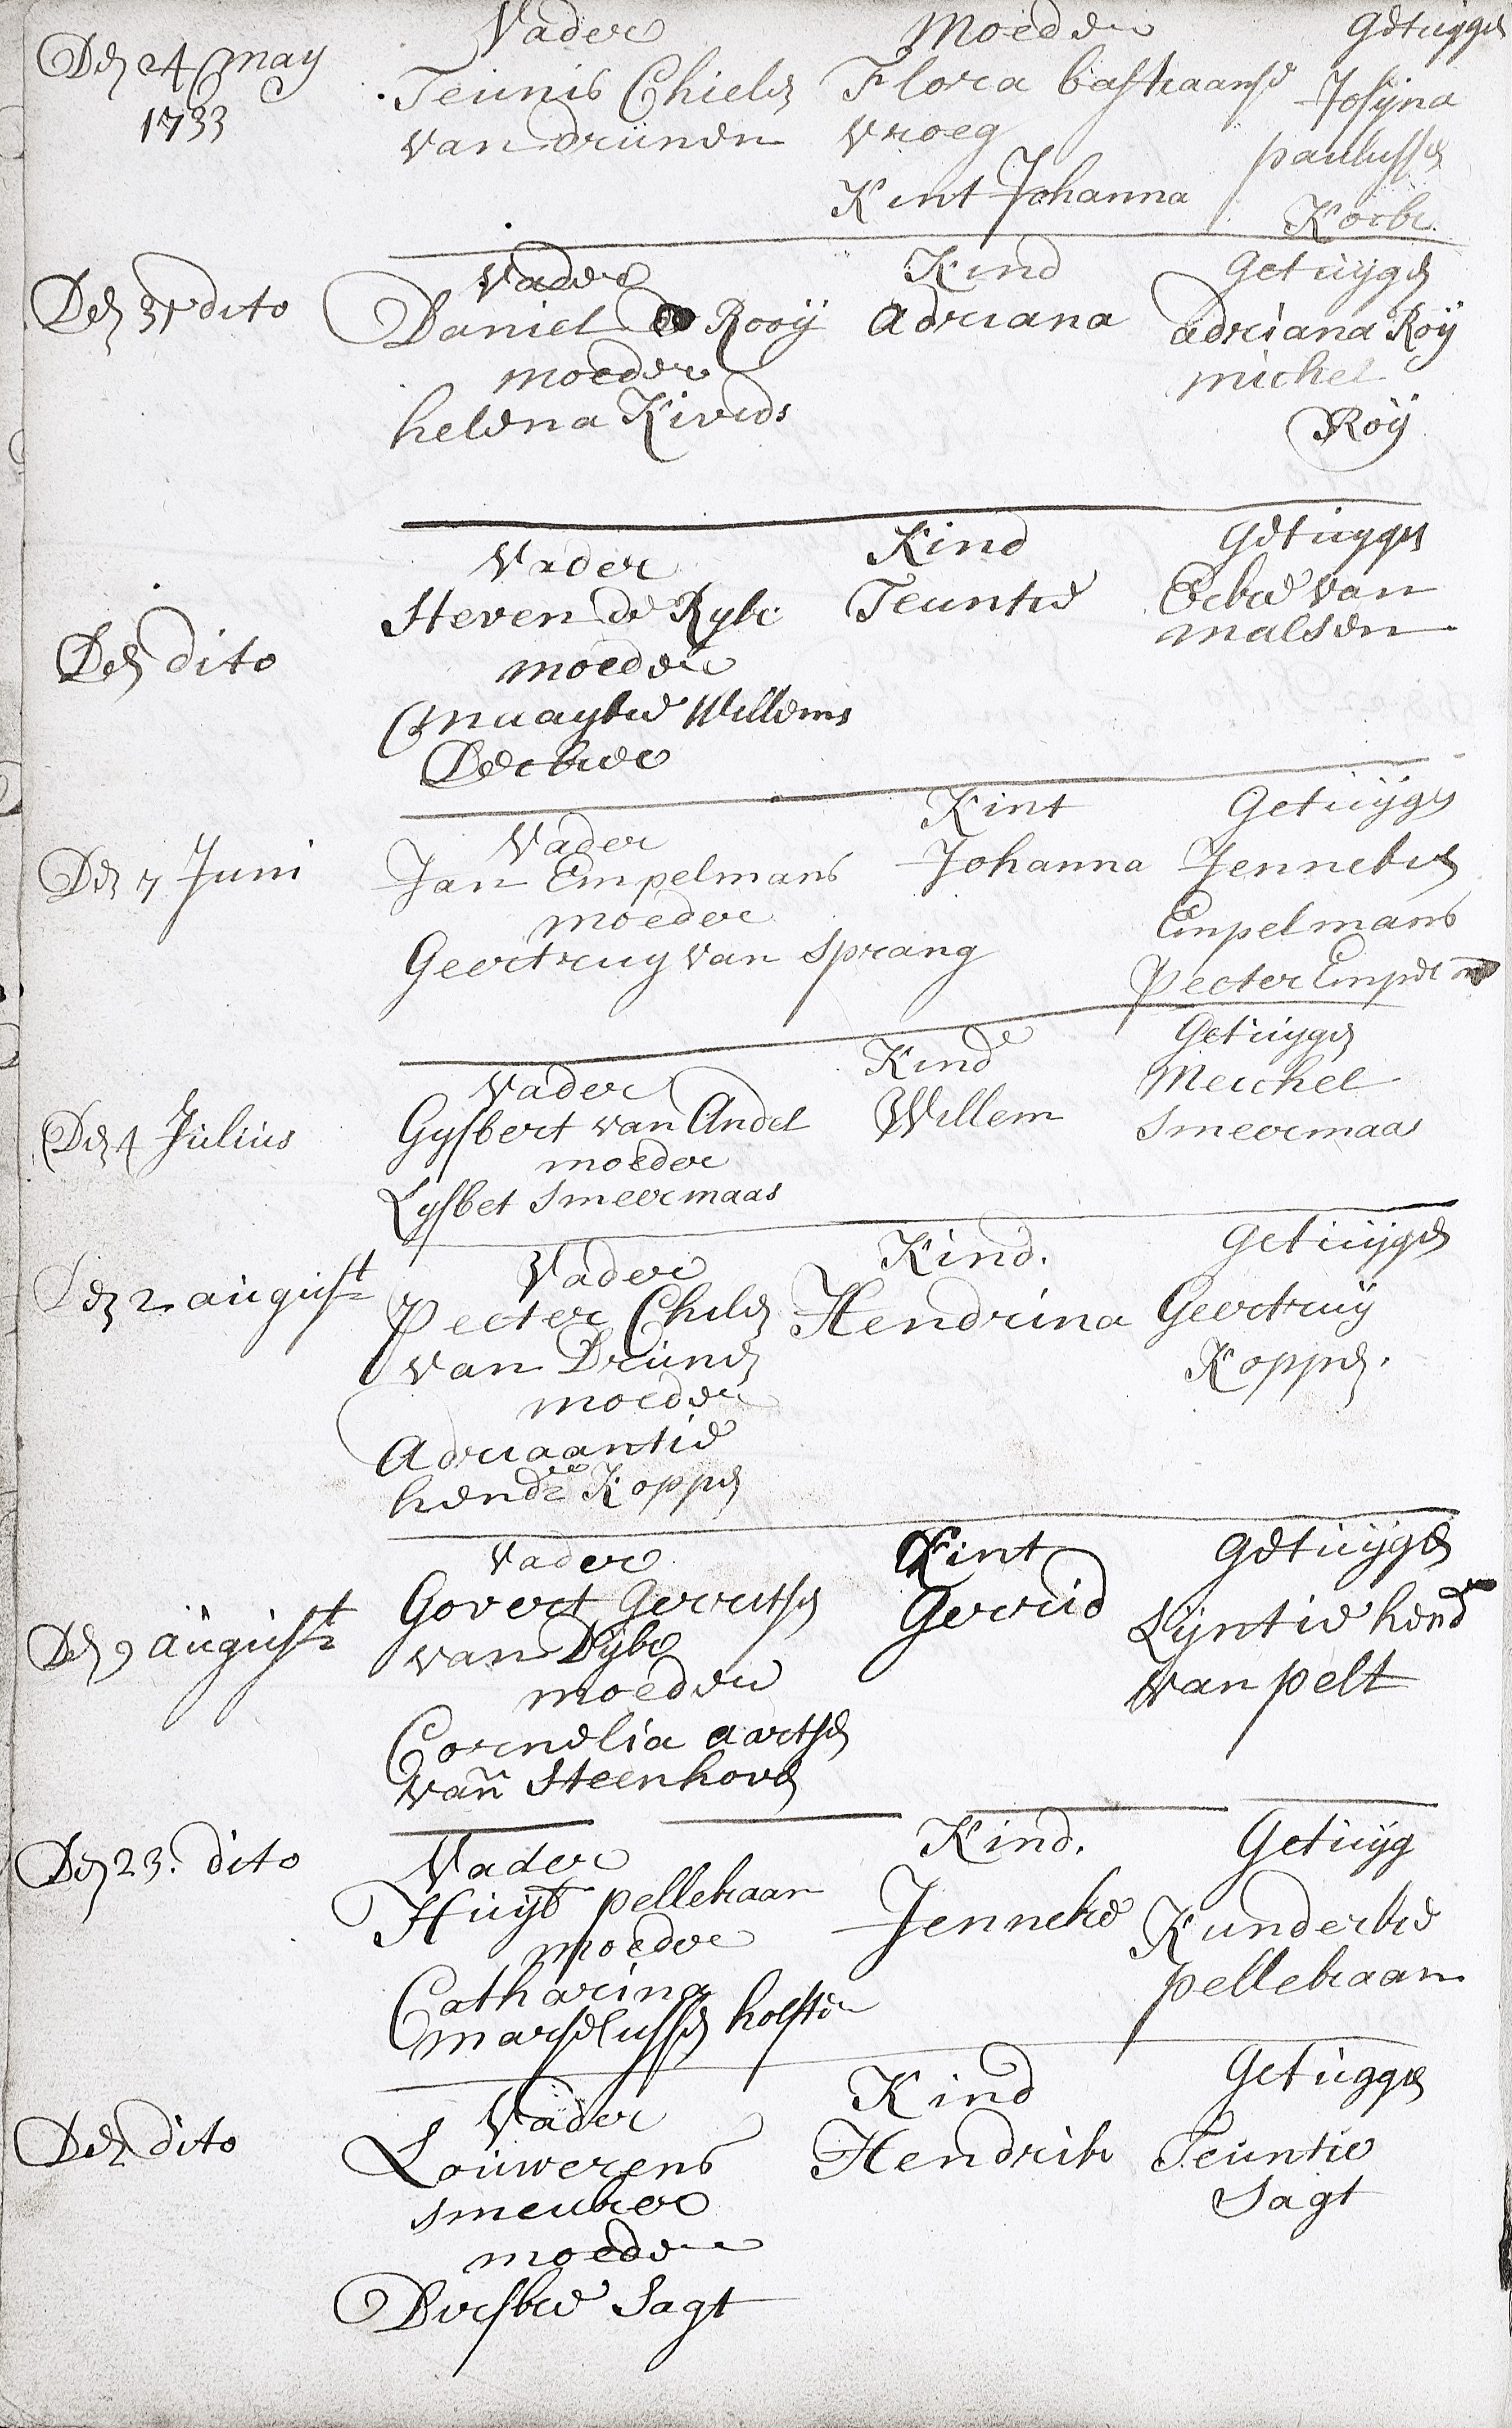 Vader Moeder Getuyge
Den 24 may Teunis Chielen Flora bastiaanse Josyna
1733 van drünen vroeg paulusse
Kint Johanna Kock
Vader Kind Getuyge
Den 31 dito Daniel de Rooÿ Adriana adriana Roÿ
moeder michel
helena Kivids Roÿ
Vader Kind Getuyge
Steven de Ryke Teuntie Eeke van
Den dito moeder malsen
maayke Willems
Decker
Vader Kint Getuyge
Den 7 Juni Jan Empelmans Johanna Jenneke
moeder Empelmans
Geertruy van Sprang Peeter Empelm
Vader Kind Getuyge
Den 4 Julius Gysbert van Andel Willem Meichel
moeder Smeermaas
Lysbet Smeermaas
Vader Kind. Getuyge
Den 2 august Peeter Chielen Hendrina Geertruÿ
van Drünen Koppen.
moeder
Adriaantie
hendr Koppen
Vader Kint Getuyge
Den 9 august Govert Gerritse Gerrid Lÿntie hend
van Dÿk van pelt
moeder
Cornelia aartse
van Steenhoven
Vader Kind. Getuÿg
Den 23. dito Huÿb pellekaan Jenneke Kunderke
moeder pellekaan
Catharina
marselusse holster
Vader Kind Getuyge
Den dito Louwerens Hendrik Teuntie
smeuker Sagt
moeder
Dirske Sagt